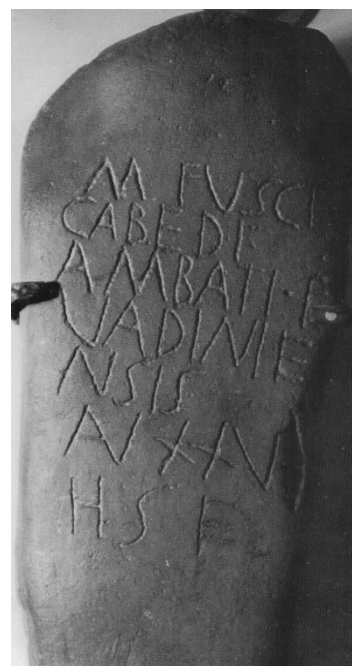 M FVSCI
CABEDI
AMBATI·F
VADINIE
NSIS
AN
H S E